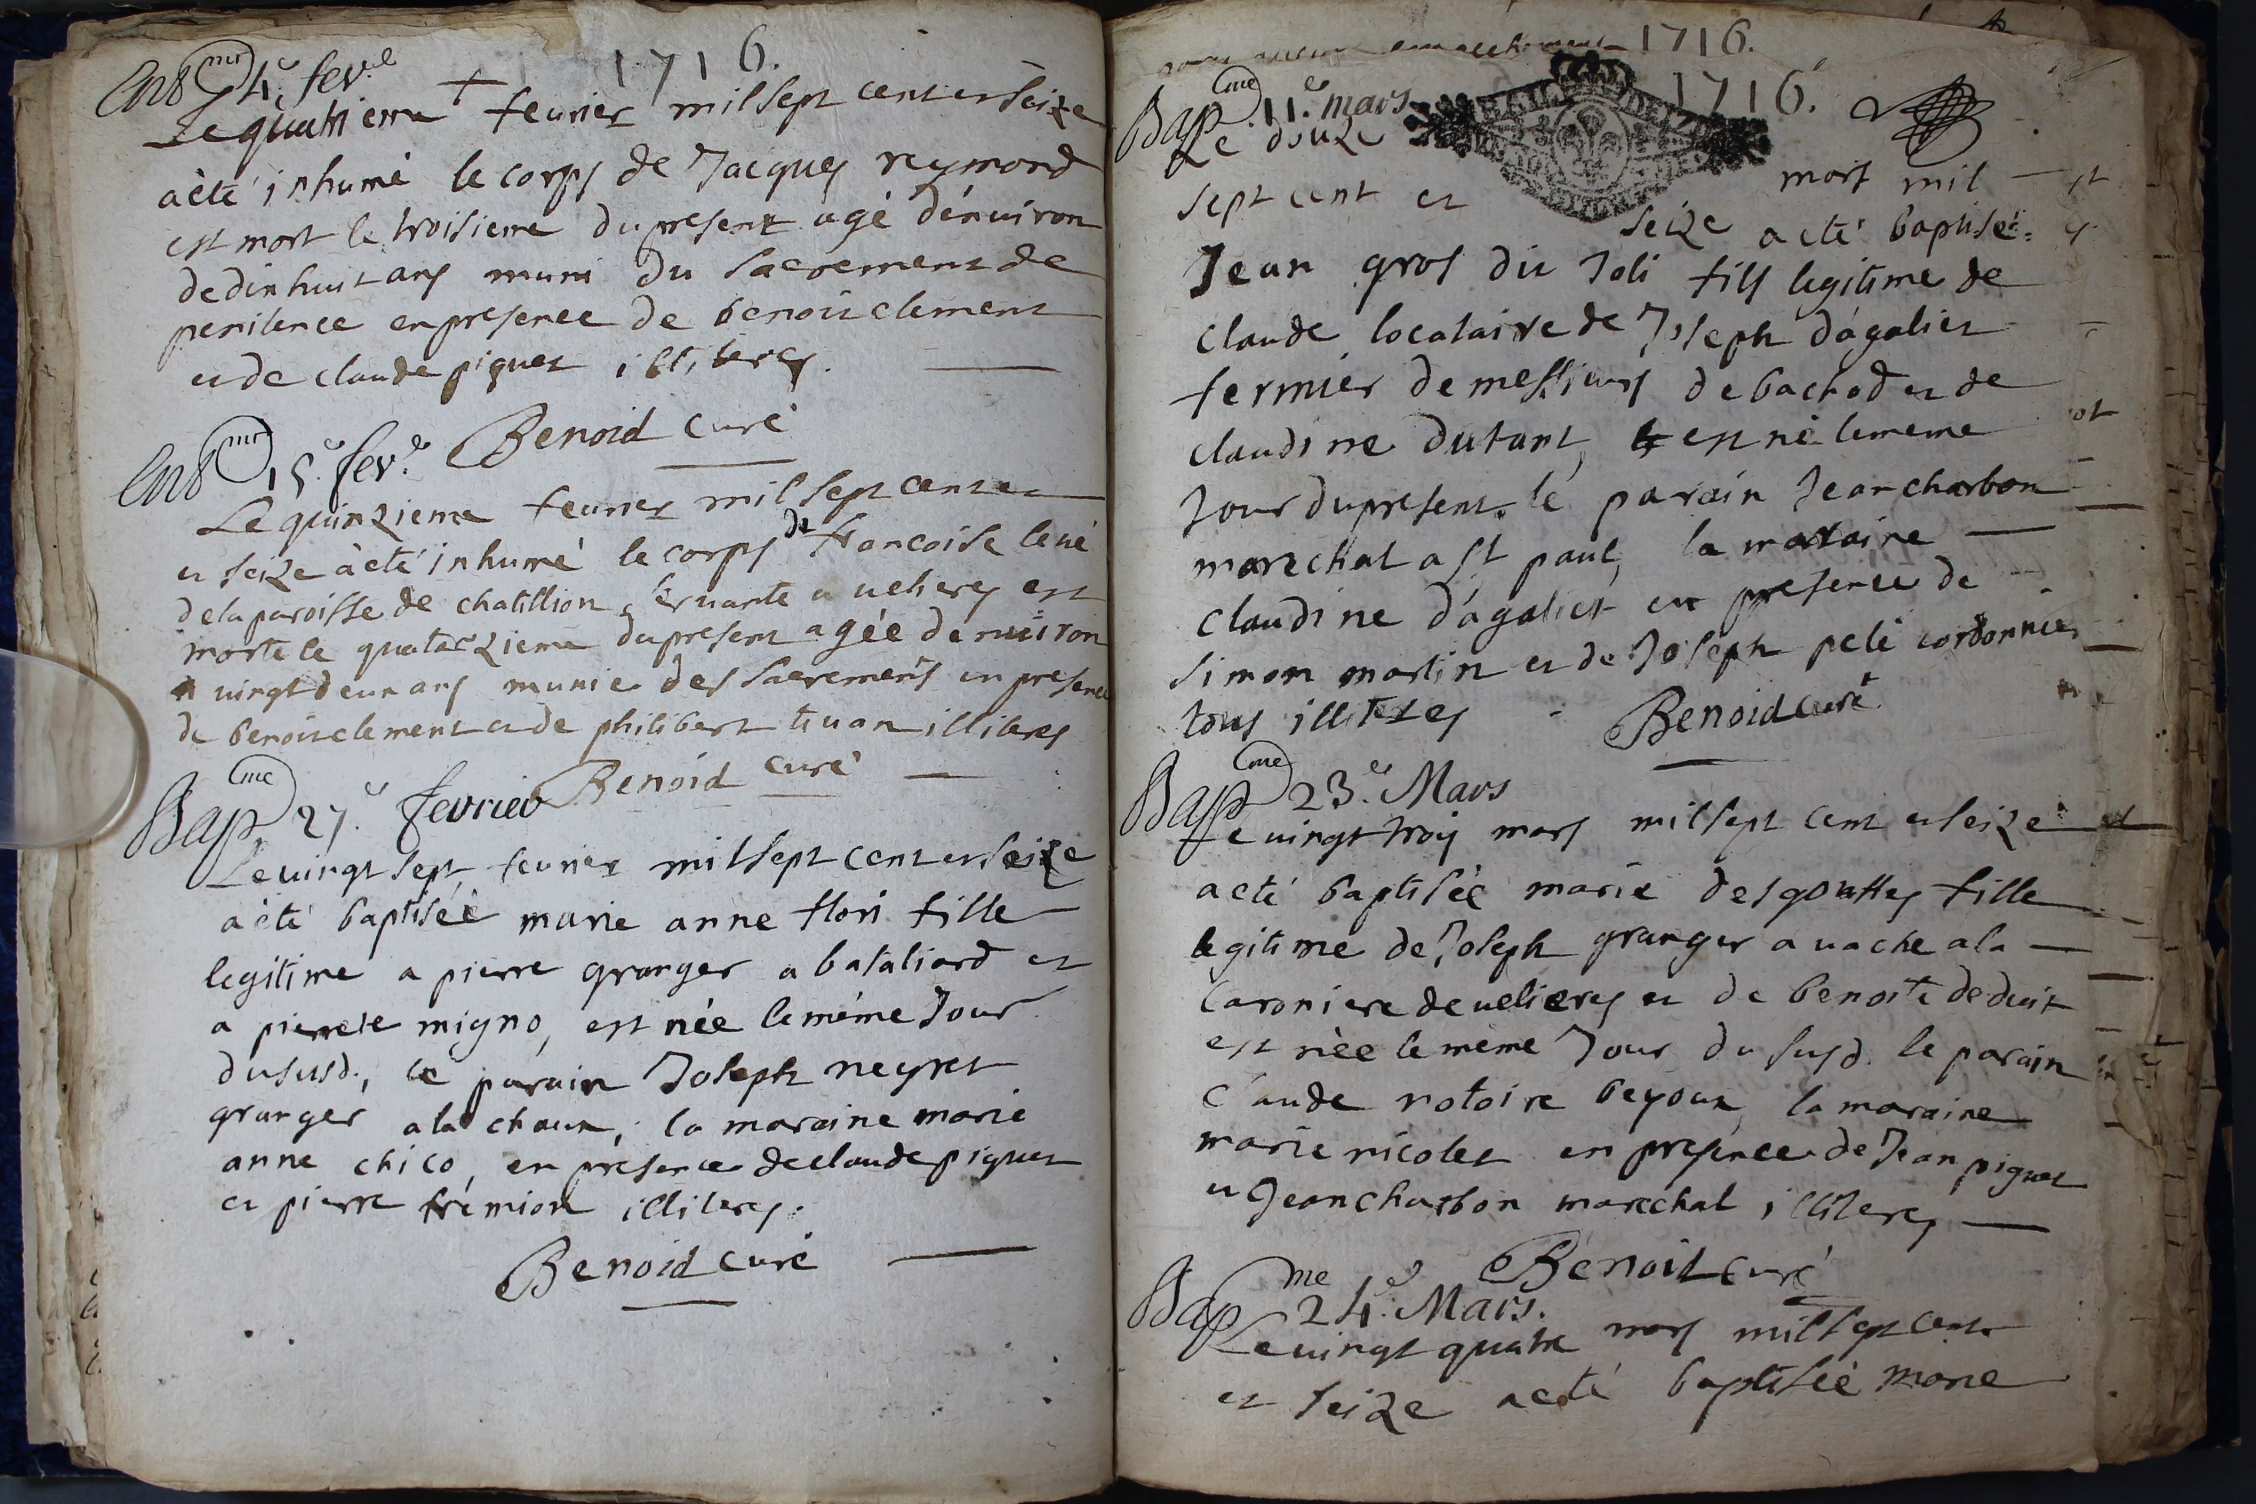 1716.
Ent.mt 4.e fev.e
Le quatrieme fevrier mil sept cent et seize
a èté inhumé le corps de Jacques reymond
est mort le troisieme du present agé dénuiron
de dixhuit ans muni du sacrement de
penitence en presence de benoit clement
et de claude piquet illiteres.
Benoid curé
Ent.mt 15.e fev.e
Le quinzieme feurier mil sept cent et
et seize a èté inhumé le corps de francoise
de la paroisse de chatillion servante a uelieres est
morte le quatorzieme du present agée denuiron
uingt deux ans munie des sacrements en presence
de benoit clement et de philibert tiuan illiteres
Benoid curé
Bap.me 27.e fevrier
Le uingt sept feurier mil sept cent et seize
a èté baptisée marie anne flori fille
legitime a pierre granger a bataliard et
a pierrete migno, est née le méme Jour
du susd., le parain Joseph neyret
granger a la chaux, la maraine marie
anne chico, en presence de claude piquet
et pierre frémion illiteres.
Benoid curé
1716.
1716.
Bap.me 11.e mars
Le douze mars mil
sept cent et seize a eté baptisé
Jean gros dit Joli fils legitime de
claude locataire de Joseph dágalier
fermier de messieurs de bachod et de
claudine dutant, est né le meme
Jour du present. le parain Jean charbon
marechal a st paul, la maraine
claudine dágalier en presence de
simon martin et de Joseph pelé cordonnier
tous illiteres
Benoid curé
Bap.me 23.e Mars
Le uingt trois mars mil sept cent et seize
a eté baptisée marie desgouttes fille
legitime de Joseph granger a uache a la
caroniere de uelieres et de benoite deduit
est née le méme Jour du susd. le parain
Claude notoire beyoux, la maraine
marie nicolet en presence de Jean piquet
et Jean charbon marechal illiteres,
Benoit curé
Bap.me 24.e Mars.
Le uingt quatre mars mil sept cent
et seize a eté baptisée marie